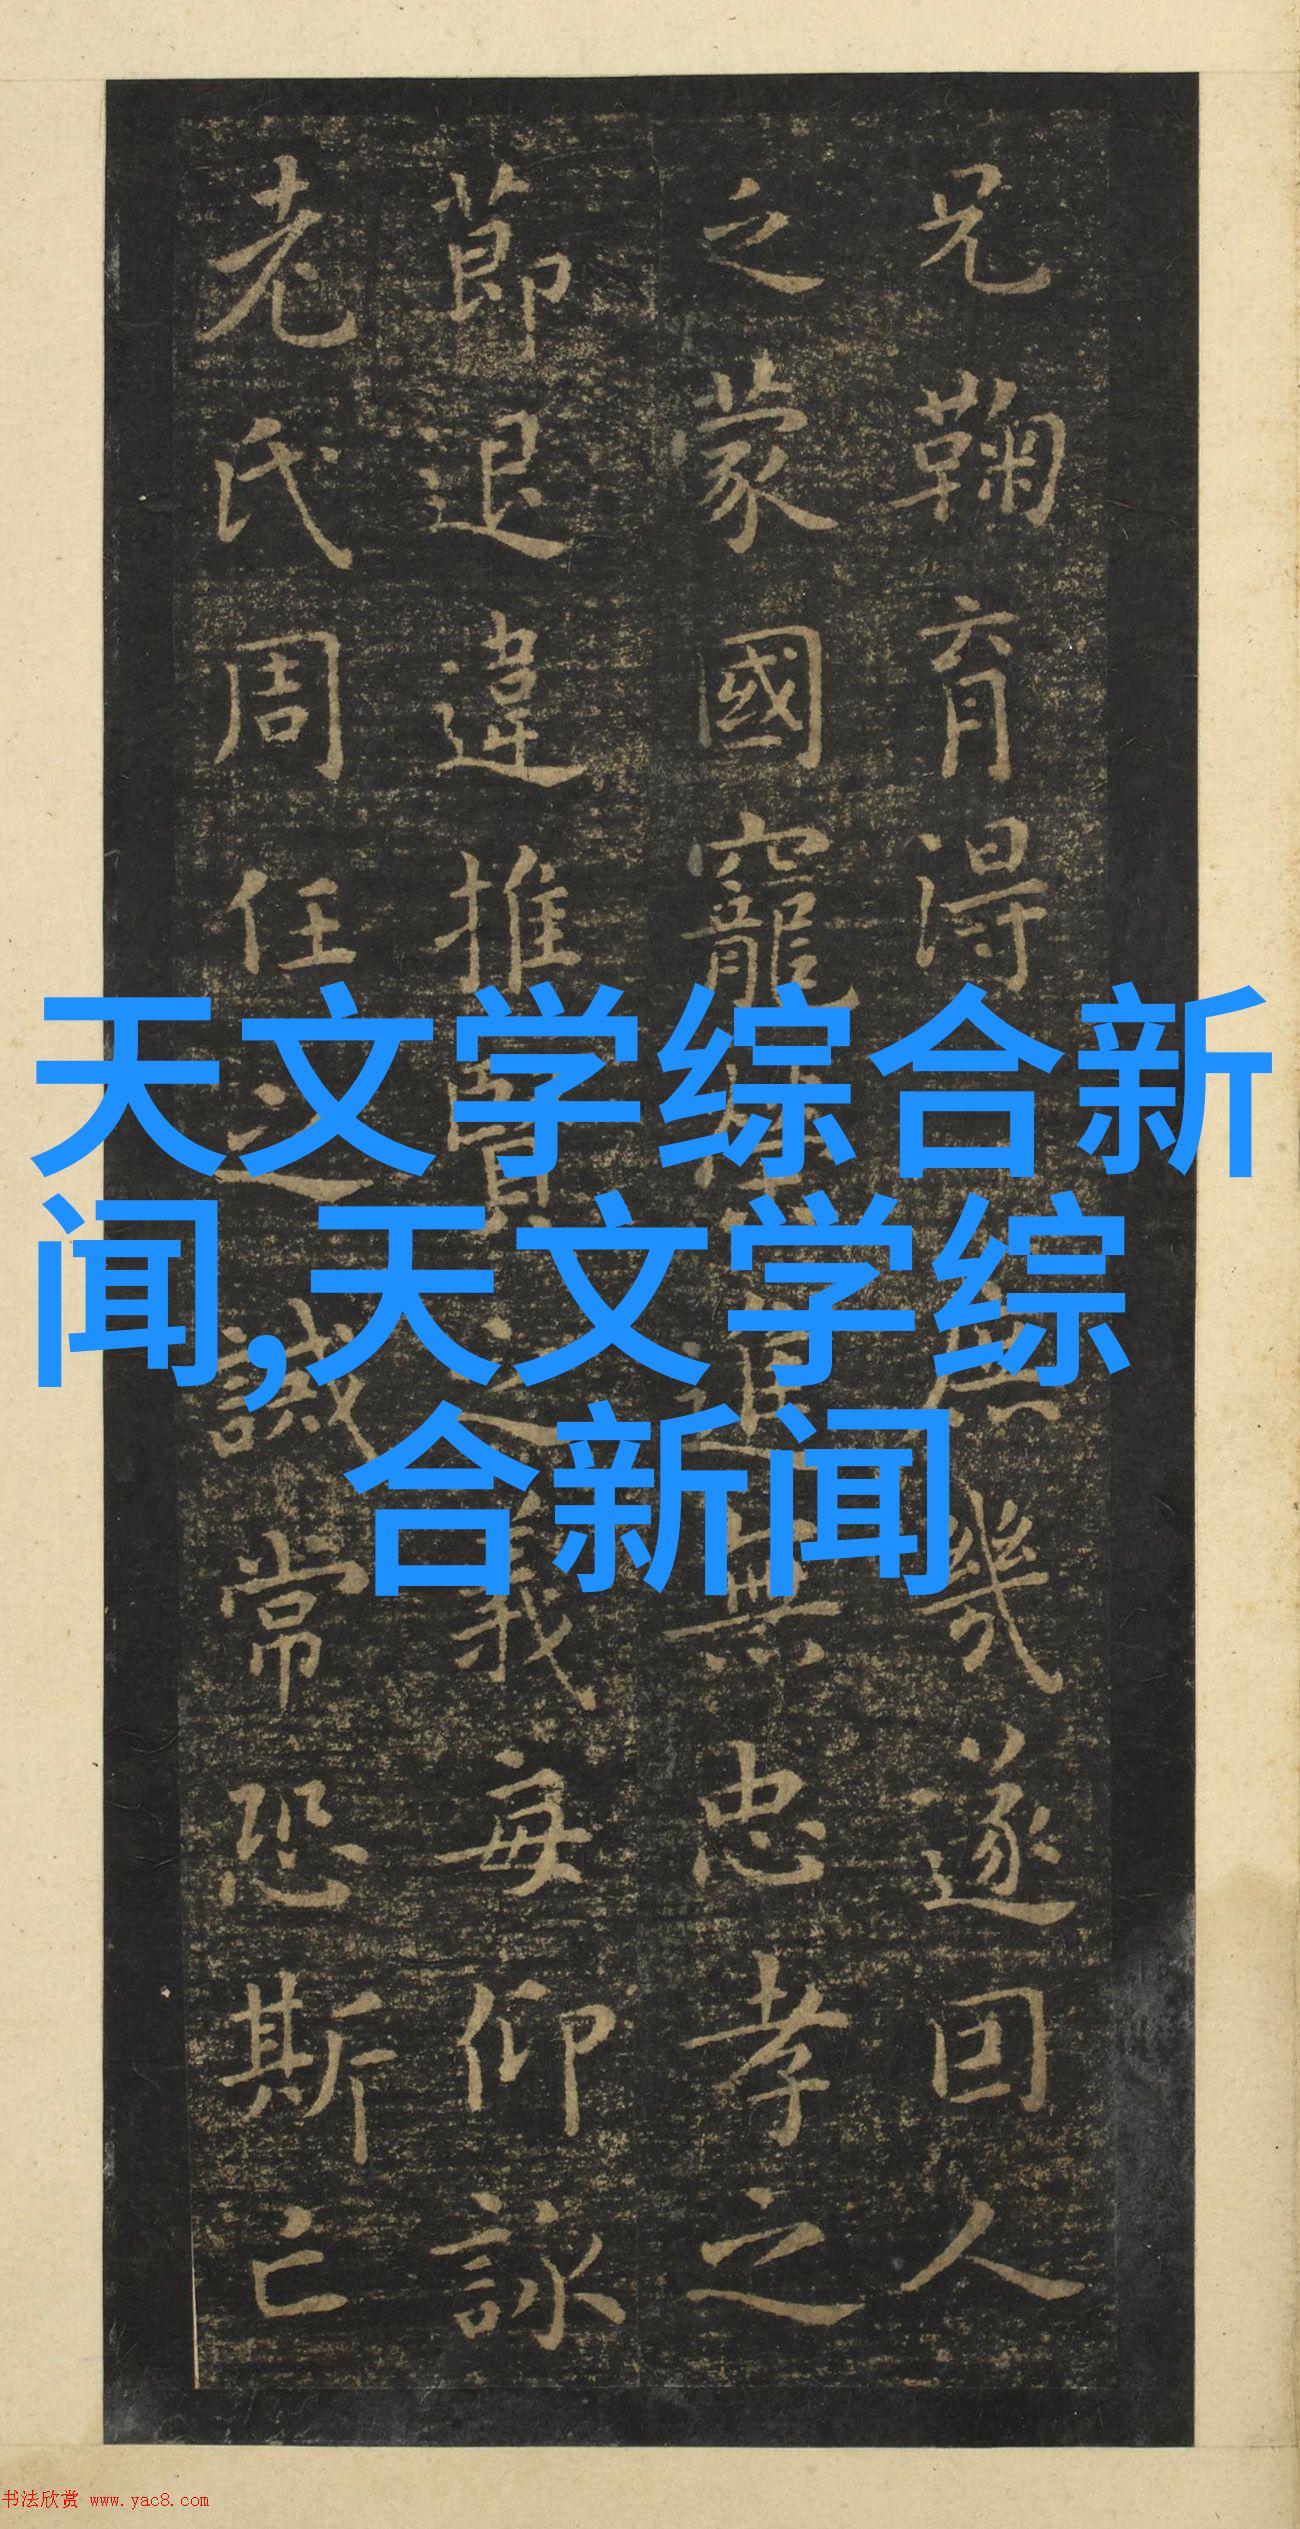 天文学综合新
闻,天文学综
合新闻
兄鞠育淂幾遂回人
之蒙國寵進無忠孝之
莭退違推賢之義每仰詠
老氏周任之誡常恐斯亡
书法欣赏 www.yac8.com